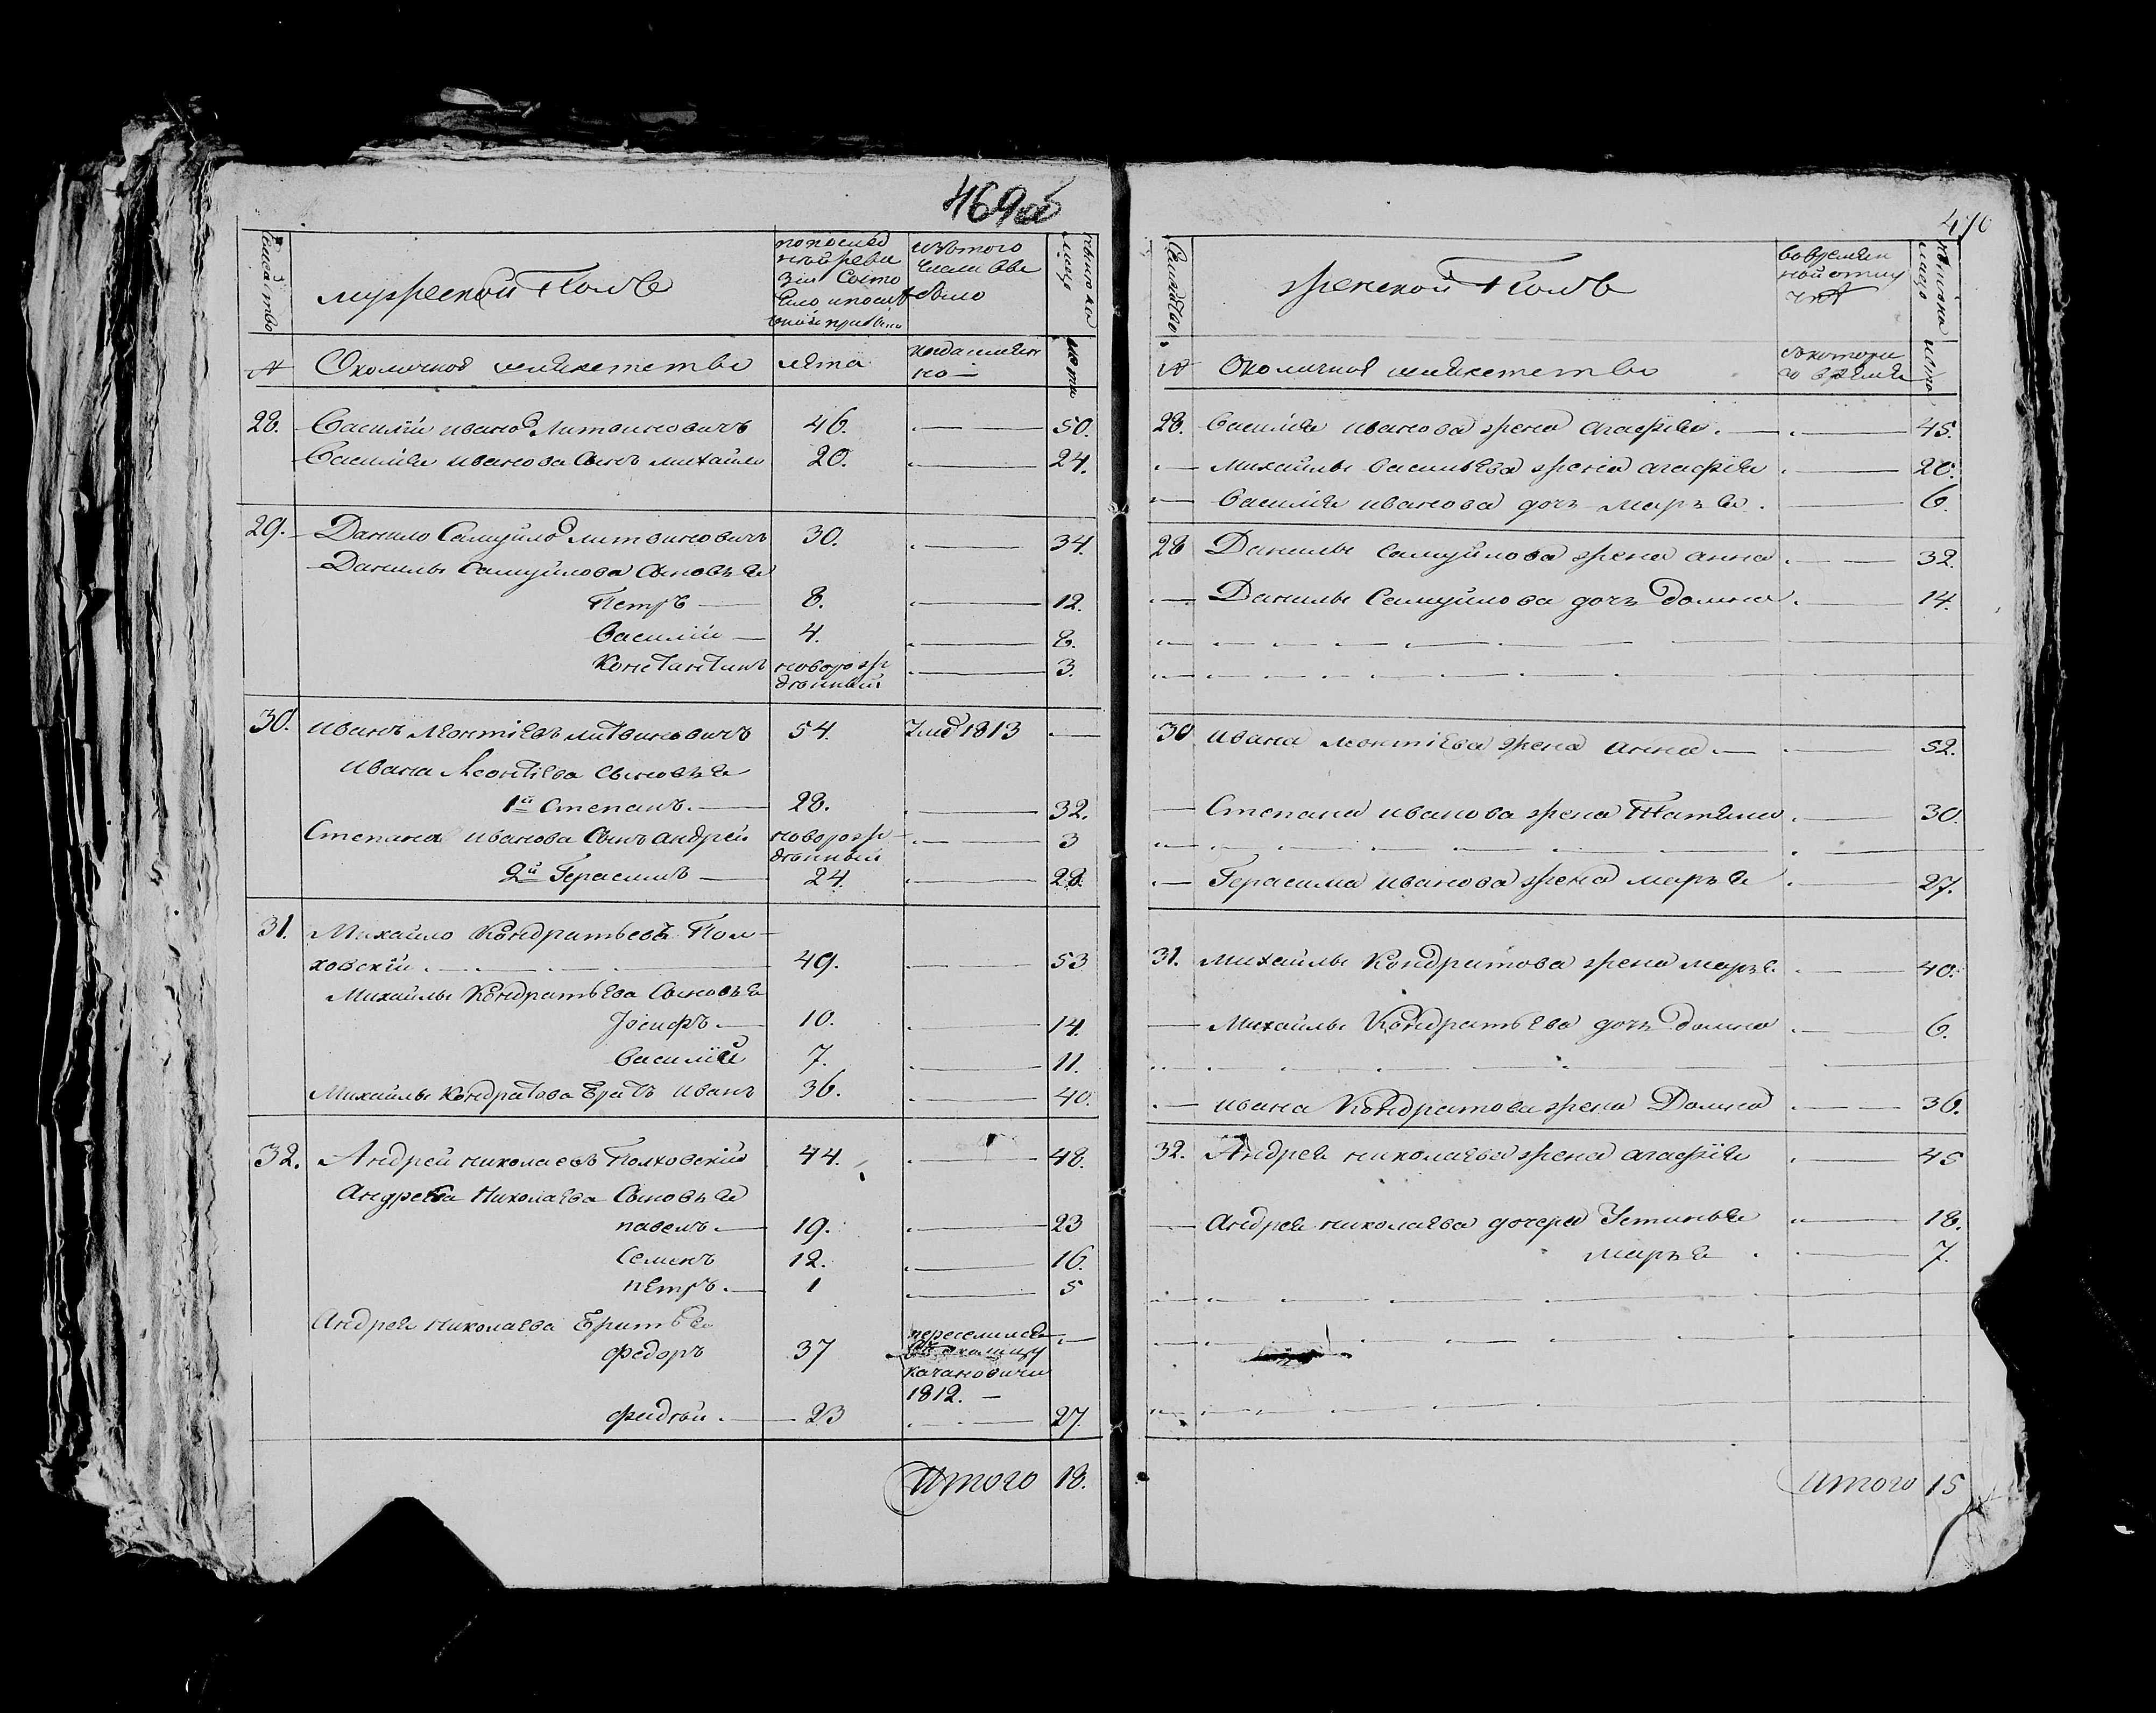 469об
Семейство
мужеской Полъ
попослед
ней реви
зіи Состо
изътого
числа выбыло
ныне на
лицо
№
Околичное шляхетство
лета
когда имянно
лета
28. Василій иванов Литвиновичъ 46. — 50.
Василія иванова Сынъ михайло 20. — 24.
29. Данило Самуйлов литвиновичъ 30. — 34.
Данилы Самуйлова Сыновья
Петръ — 8. — 12.
Василій — 4. — 8.
Константинъ новорож
денный — 3.
30. иванъ леонтіевъ литвиновичъ 54. умер 1813 —
ивана Леонтіева сыновья
1й Степанъ. — 28. — 32.
Степана иванова Сынъ андрей новорож — 3
денный
2й Герасимъ — 24. — 28.
31. Михайло Кондратьевъ Пол-
ховскій. — 49. — 53
Михайлы Кондратьева Сыновья
Іосифъ. — 10. — 14.
Василій 7. — 11.
Михайлы Кондратова Братъ иванъ 36. — 40.
32. Андрей николаевъ Полховскій 44. — 48.
Андрея Николаева Сыновья
павелъ. — 19. — 23
Семенъ 12. — 16.
пётръ. — 1 — 5
Андрея николаева Братья
федоръ 37 переселился —
в околицу
качановичи
1812. —
фадей. — 23 — 27.
Итого 18.
470
Семейство
женской Полъ
вовремен
ной отлу
чке
ныне на
лицо
№
Околичное шляхетство
скотора
го время
лета
28. Василія иванова жена агафія. — 45.
— михайлы васильева жена агафія. — 20.
— Василія иванова дочь марья. — 6.
28 Данилы самуйлова жена анна. — 32.
— Данилы Самуйлова дочь домна. — 14.
30 ивана леонтіева жена анна — 52.
— Степана иванова жена Татьяна. — 30.
— Герасима иванова жена марья. — 27.
31. михайлы Кондратова жена марья. — 40.
— михайлы Кондратьева дочь домна. — 6.
— ивана Кондратова жена Домна. — 36.
32. Андрея николаева жена агафія. — 45
— андрея николаева дочери Устинья — 18.
марья. — 7.
Итого 15